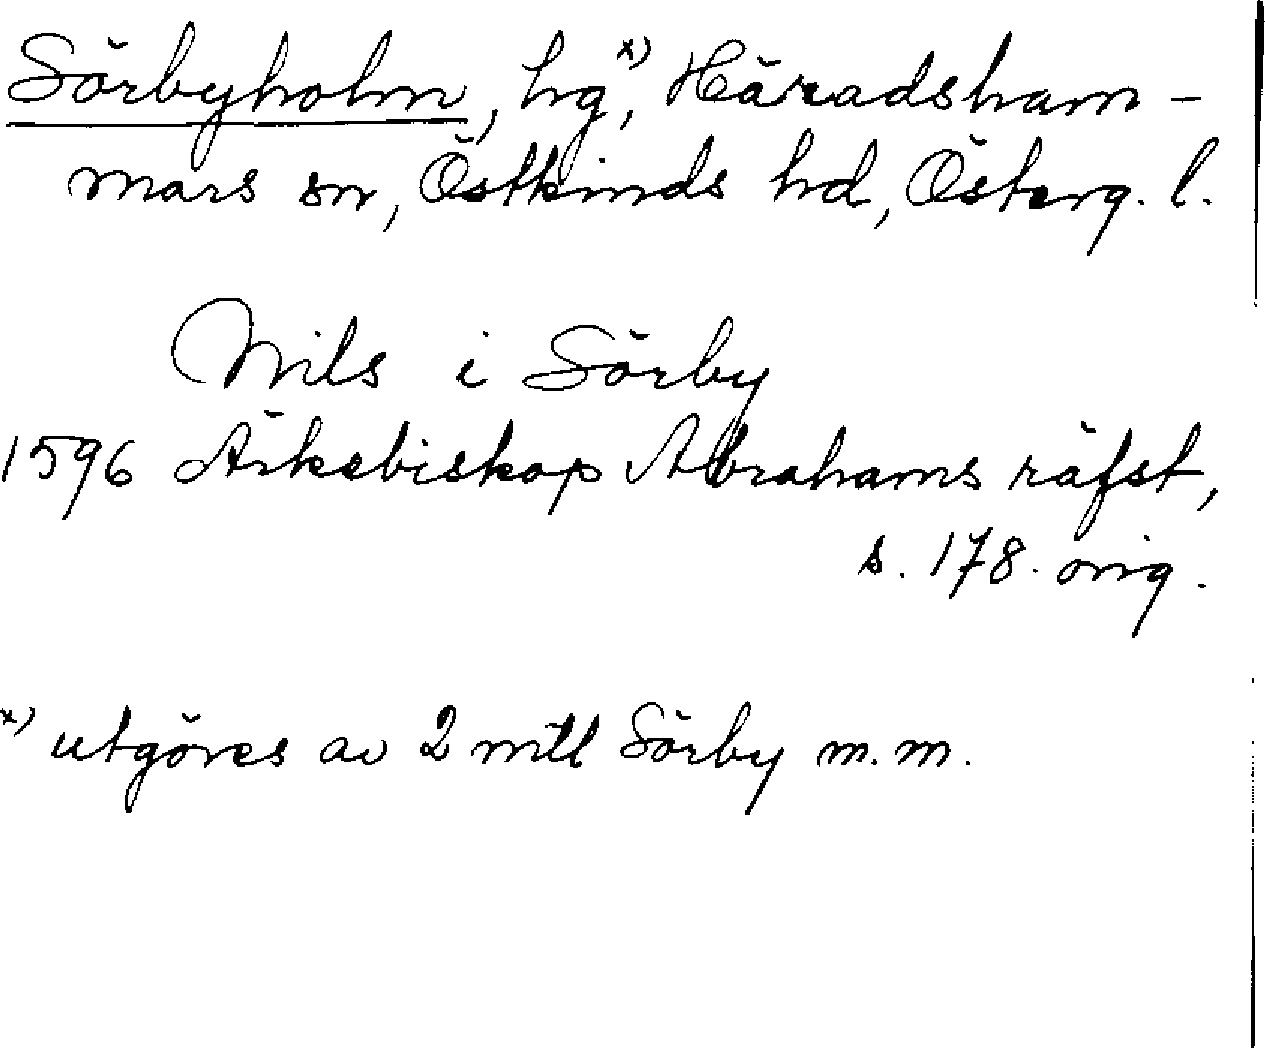 Sörbyholm, hg,ˣ⁾ Häradsham-
mars sn, Östkinds hd, Österg. l.
Nils i Sörby
1596 Ärkebiskop Abrahams räfst,
s. 178. orig.
ˣ⁾ utgöres av 2 mtl Sörby m.m.